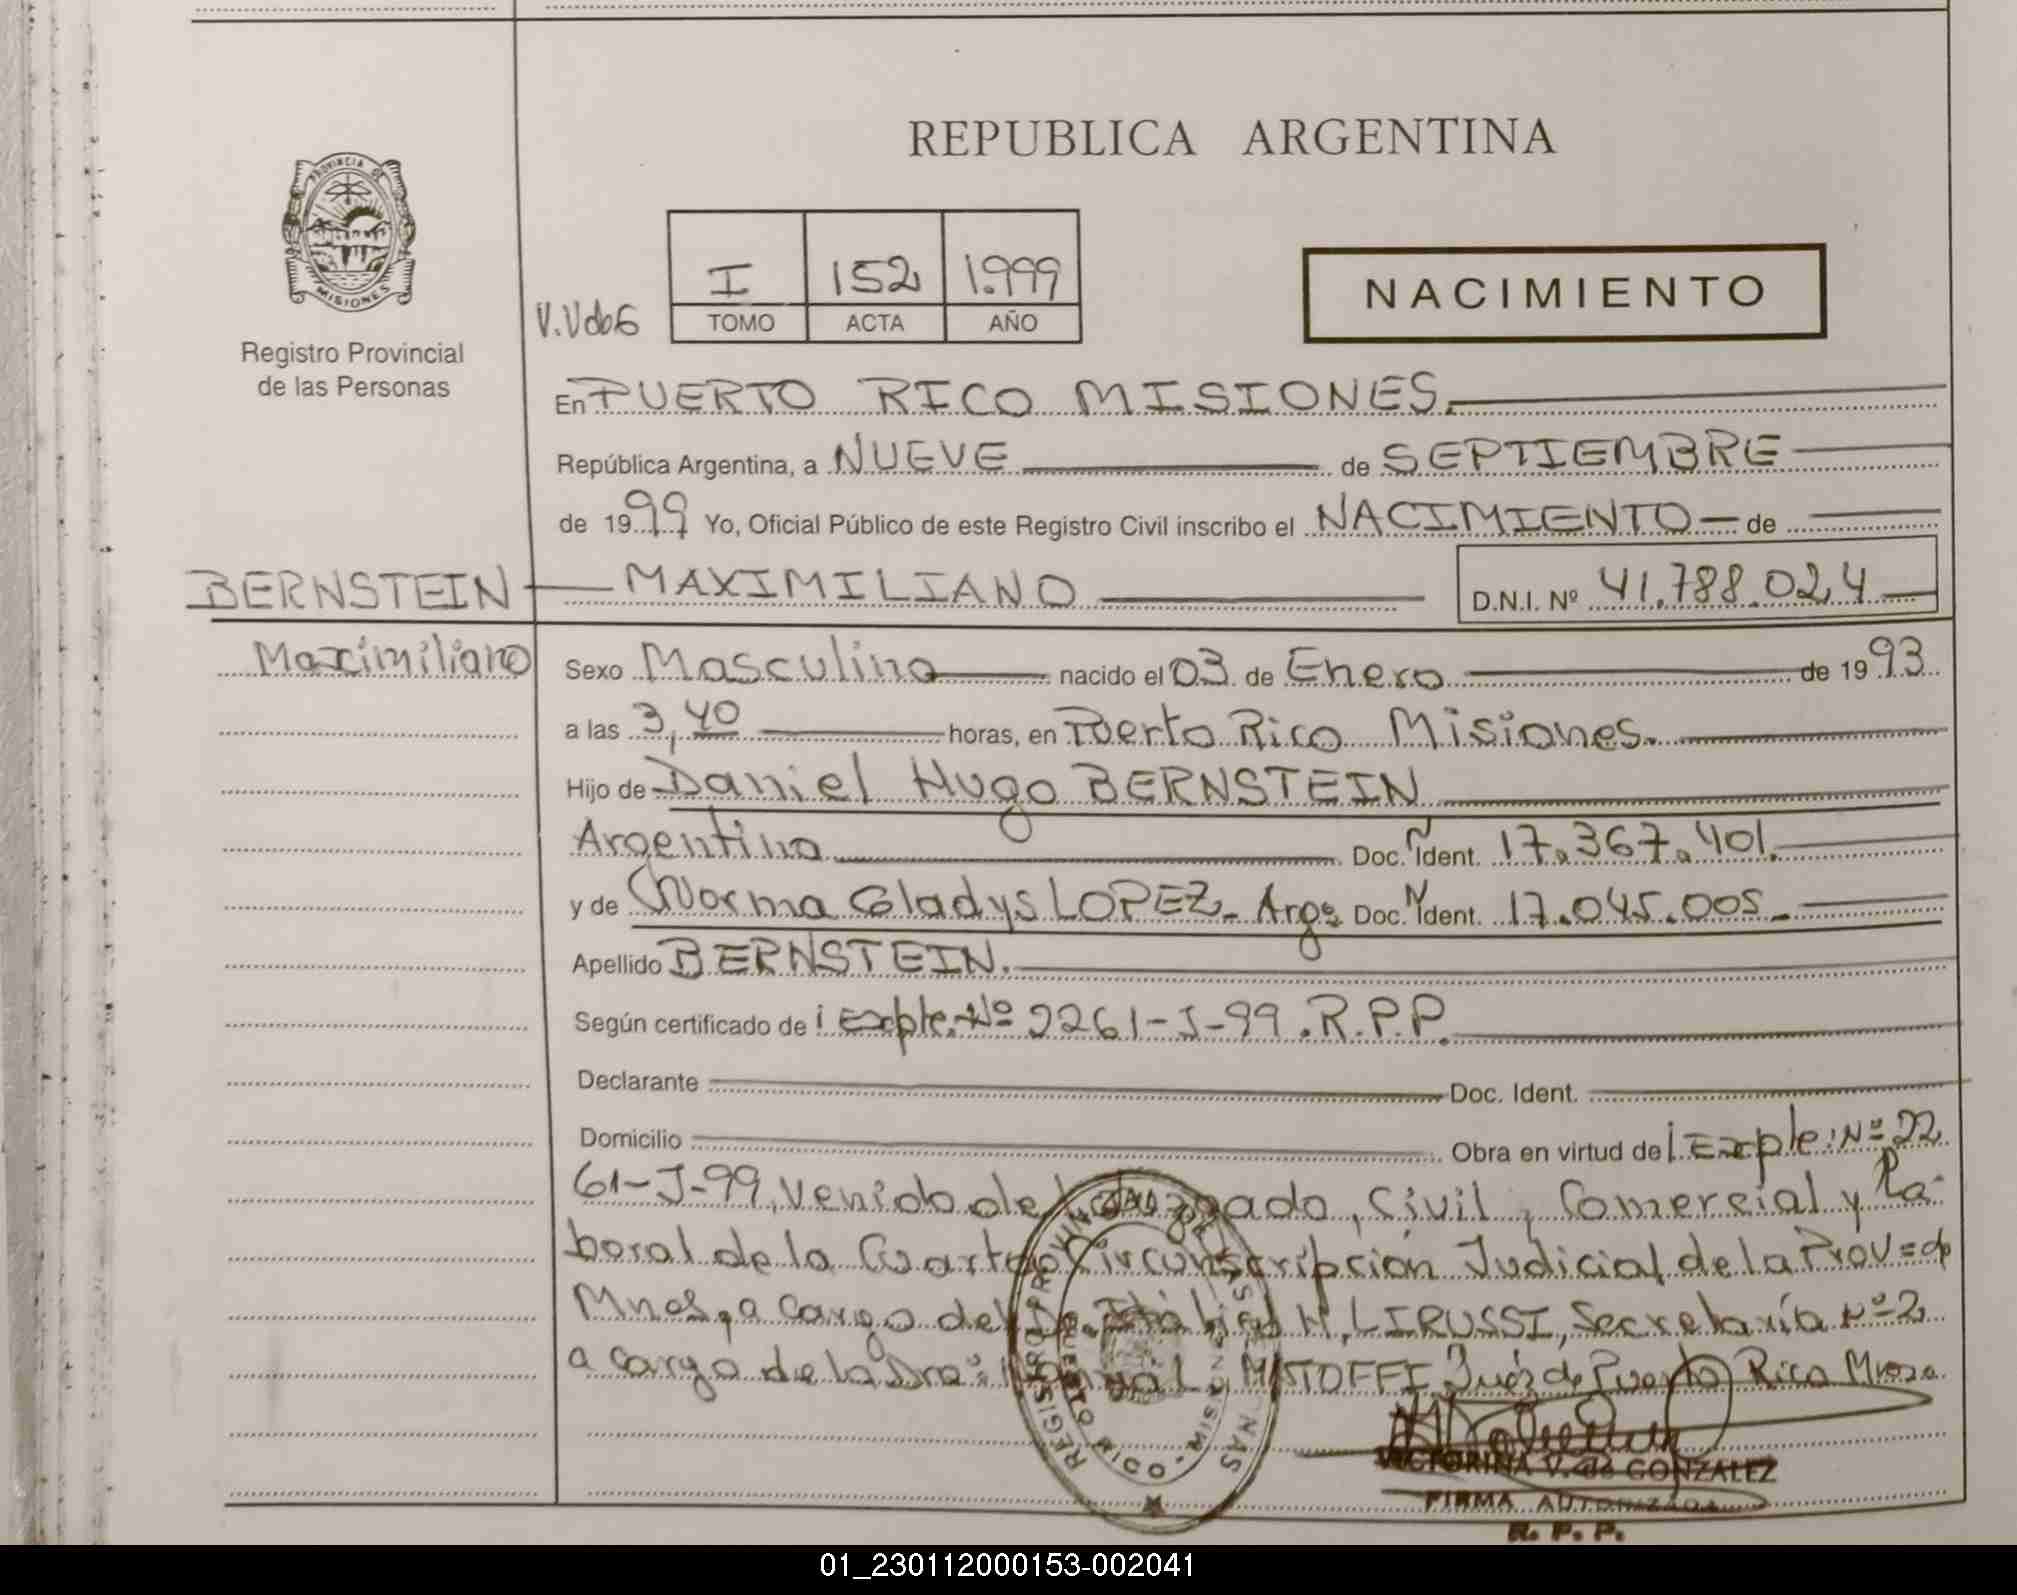 REPUBLICA ARGENTINA
PROVINCIA DE
MISIONES
Registro Provincial
de las Personas
V.VdeG
I 152 1.999
TOMO ACTA AÑO
NACIMIENTO
En PUERTO RICO MISIONES.
República Argentina, a NUEVE de SEPTIEMBRE
de 1999 Yo, Oficial Público de este Registro Civil inscribo el NACIMIENTO de
BERNSTEIN MAXIMILIANO D.N.I. Nº 41.788.024
Maximiliano
Sexo Masculino nacido el 03 de Enero de 1993
a las 3,40 horas, en Puerto Rico Misiones.
Hijo de Daniel Hugo BERNSTEIN
Argentino Doc. Ident. 17.367.401.
y de Norma Gladys LOPEZ- Arg. Doc. Ident. 17.045.005-
Apellido BERNSTEIN.
Según certificado de Exple. Nº 2261-J-99.R.P.P.
Declarante Doc. Ident.
Domicilio Obra en virtud de Exple: Nº 22
61-J-99, Venido del Juzgado, Civil, Comercial y La-
boral de la Cuarta Circunscripción Judicial de la Prov= de
Mnes, a cargo del Dr. H. LIRUSSI, Secretaría Nº 2
a cargo de la Dra: L. MATOFFI Juez de Puerto Rico Mnes.
REGISTRO PROVINCIAL DE LAS PERSONAS
PUERTO RICO - MISIONES
VICTORINA V. de GONZALEZ
FIRMA AUTORIZADA
R. P. P.
01_230112000153-002041